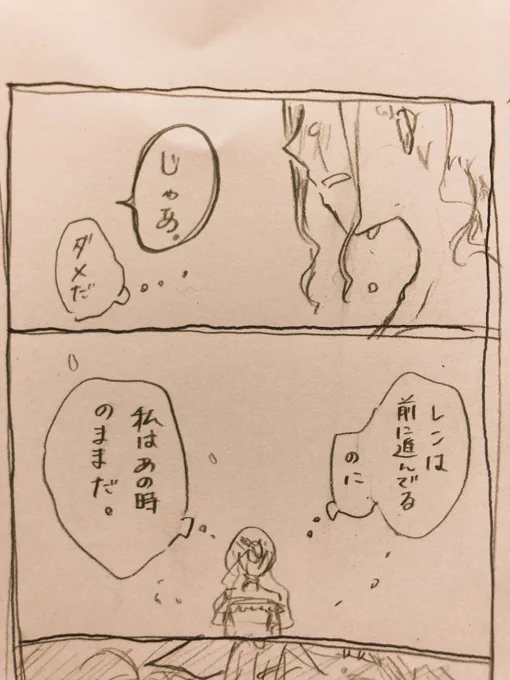 じゃあ。
ダメだ
レンは
前に進んでる
のに
私はあの時
のままだ。